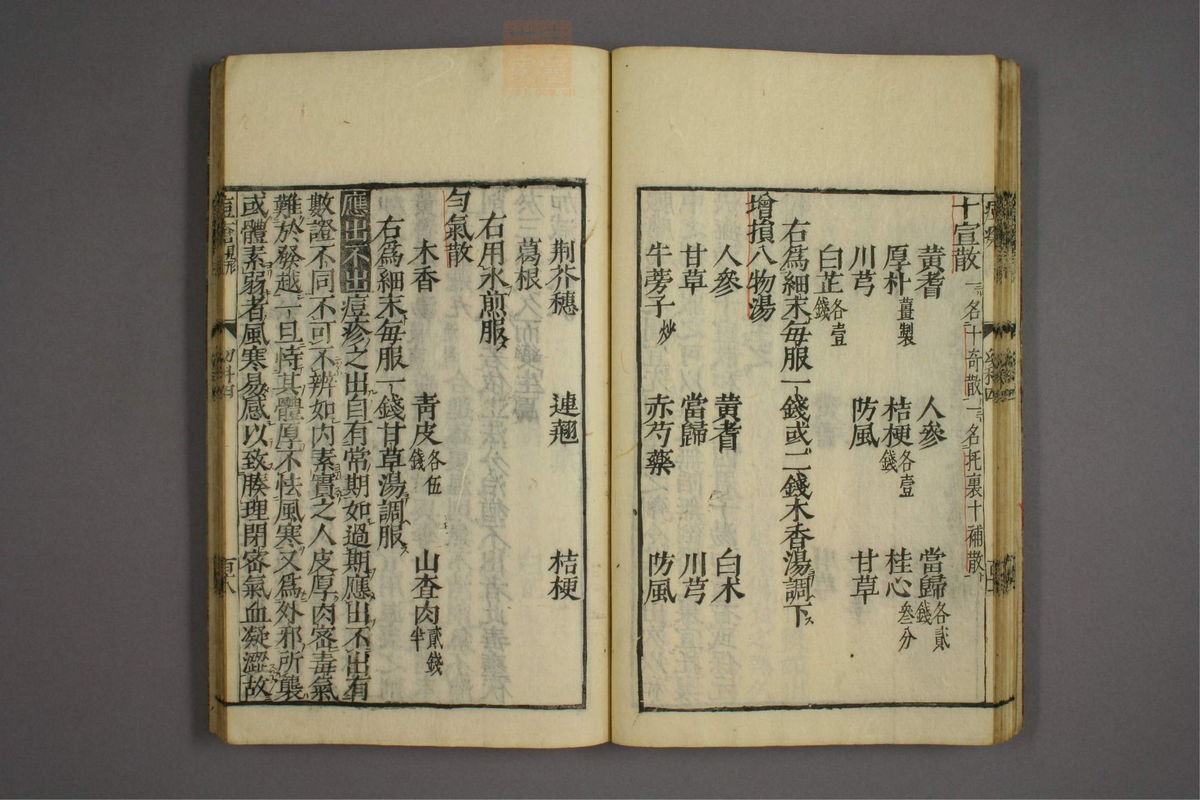 十宣散一名十奇散二名托裏十補散
黃耆 人參 當歸各貳錢
厚朴薑製 桔梗各壹錢 桂心叁分
川芎 防風 甘草
白芷各壹錢
右爲細末每服一錢或二錢木香湯調下
增損八物湯
人參 黃耆 白术
甘草 當歸 川芎
牛蒡子炒 赤芍藥 防風
荆芥穗 連翹 桔梗
葛根
右用水煎服
勻氣散
木香 青皮各伍錢 山查肉貳錢半
右爲細末每服一錢甘草湯調服
應出不出痘疹之出自有常期如過期應出不出有
數證不同不可不辨如內素實之人皮厚肉密毒氣
難於發越一旦恃其體厚不怯風寒又爲外邪所襲
或體素弱者風寒易感以致腠理閉密氣血凝澀故